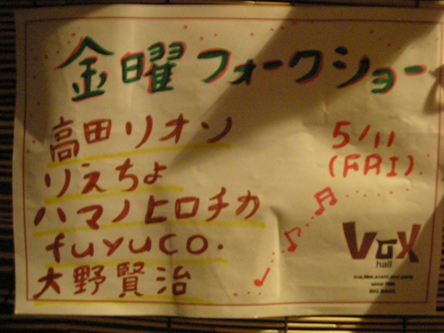 金曜フォークショー
高田リオン
りえちょ
ハマノヒロチカ
fuyuco.
大野賢治
5/11
(FRI)
VOX
hall
live,film,event,and party